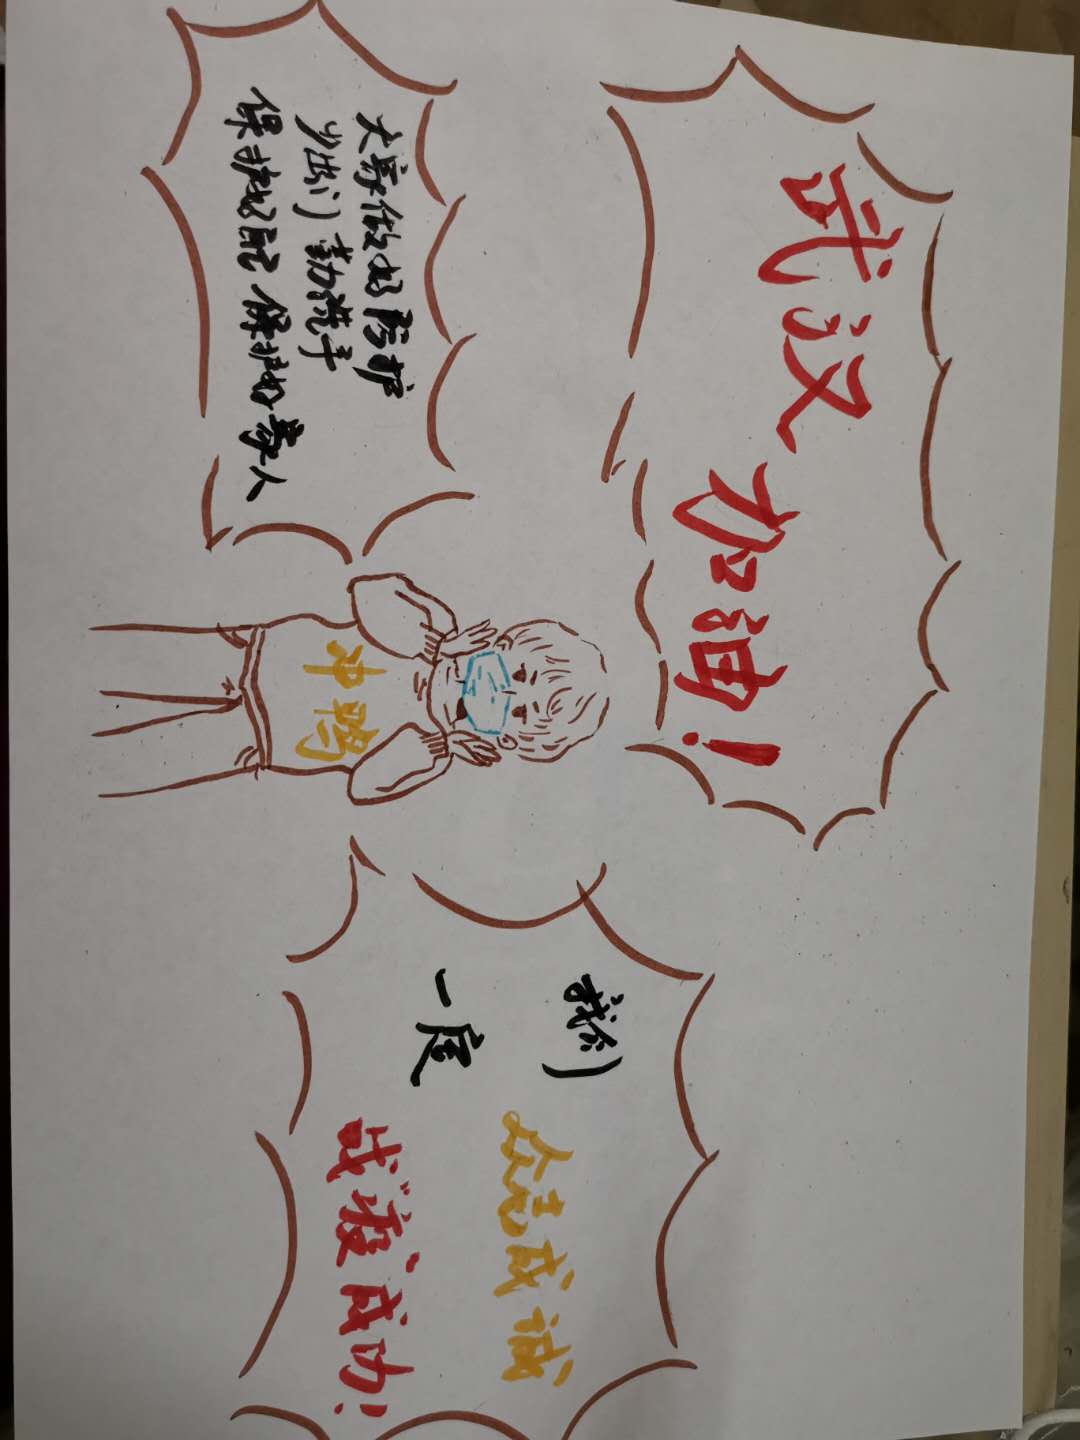 武汉加油!
大家做好防护
少出门 勤洗手
保护好自己 保护好家人
冲鸭
我们 众志成诚
一定 战疫成功!